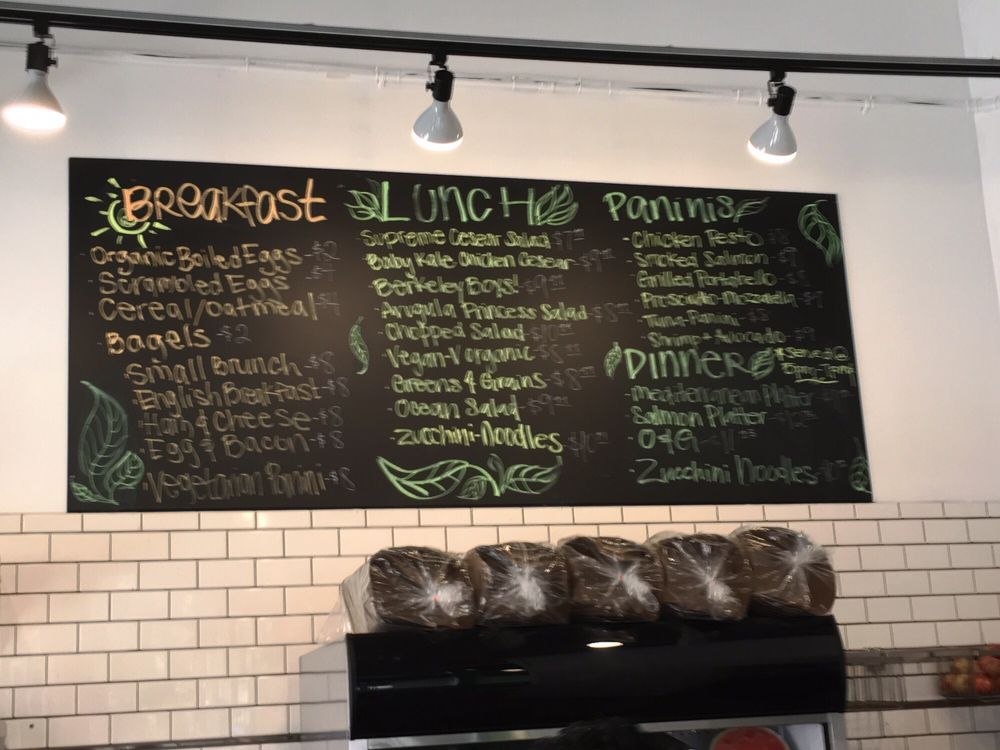 BREAKFAST
Organic Boiled Eggs -$2
Scrambled Eggs
Cereal/oatmeal
Bagels -$2
Small Brunch -$8
English Breakfast -$8
Ham & Cheese -$8
Egg & Bacon -$8
Vegetarian Panini -$8
LUNCH
Supreme Cesear Salad
Baby Kale Chicken Cesear
Berkeley Boys!
Arugula Princess Salad
Chopped Salad
Vegan-V organic
Greens & Grains
Ocean Salad
Zucchini-Noodles
PANINIS
-Chicken Pesto
-Smoked Salmon
-Grilled Portabello
-Prosciutto-Mozzarella
-Tuna Panini
-Shrimp + Avocado
DINNER
*Served @
-Mediterranean Platter
-Salmon Platter
-Zucchini Noodles